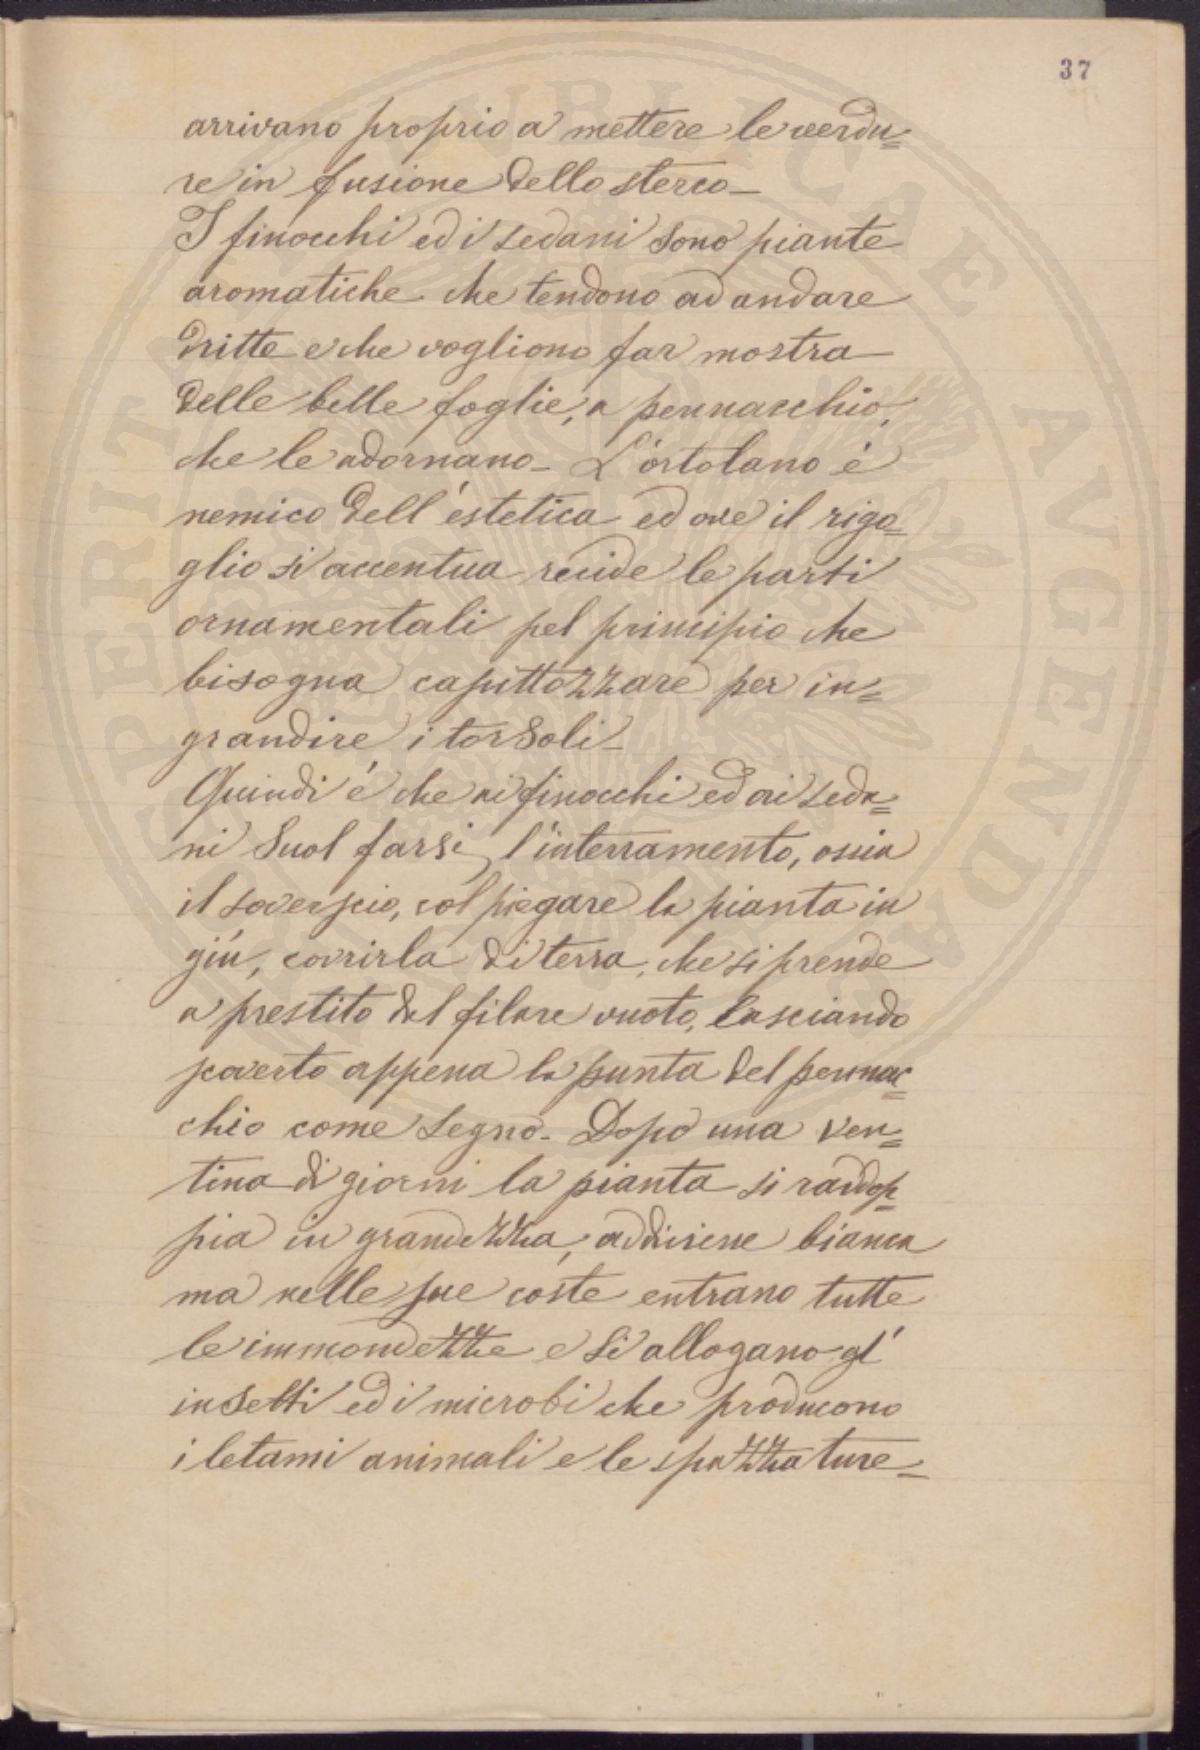 37
arrivano proprio a mettere le verdu=
re in fusione dello sterco_
I finocchi ed i sedani sono piante
aromatiche che tendono ad andare
dritte e che vogliono far mostra
delle belle foglie, a pennacchio,
che le adornano_ L'ortolano é
nemico dell'éstetica ed ove il rigo=
glio si accentua recide le parti
ornamentali pel principio che
bisogna caputtozzare per in=
grandire i torsoli_
Quindi é che ai finocchi ed ai seda=
ni suol farsi l'interramento, ossia
il soverscio, col piegare la pianta in
giú, covrirla di terra, che si prende
a prestito dal filare vuoto, lasciando
scoverto appena la punta del pennac=
chio come segno_ Dopo una ven=
tina di giorni la pianta si raddop=
pia in grandezza, addiviene bianca
ma nelle sue coste entrano tutte
le immondezze e si allogano gl'
insetti ed i microbi che producono
i letami animali e le spazzature_
PERITATI PVBLICAE AVGENDAE